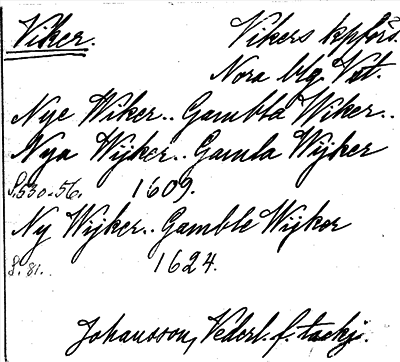 Viker. Vikers kpförs.
Nora btg. Vst.
Nye Wiker.. Gambla Wiker..
Nya Wijker.. Gamla Wijker
S.530-56. 1609.
Ny Wijker.. Gamble Wijker
S. 81. 1624.
Johansson, Vederl. f. tackj.